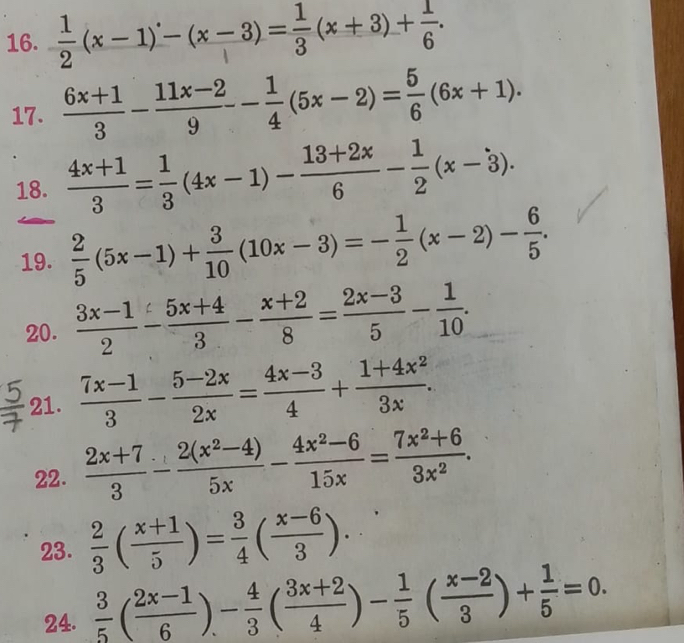 16. 1/2 (x − 1) − (x − 3) = 1/3 (x + 3) + 1/6.
17. 6x+1/3 − 11x−2/9 − − 1/4 (5x − 2) = 5/6 (6x + 1).
18. 4x+1/3 = 1/3 (4x − 1) − 13+2x/6 − 1/2 (x − 3).
19. 2/5 (5x − 1) + 3/10 (10x − 3) = − 1/2 (x − 2) − 6/5.
20. 3x−1/2 − 5x+4/3 − x+2/8 = 2x−3/5 − 1/10.
5/7 21. 7x−1/3 − 5−2x/2x = 4x−3/4 + 1+4x²/3x.
22. 2x+7/3 − 2(x²−4)/5x − 4x²−6/15x = 7x²+6/3x².
23. 2/3 (x+1/5) = 3/4 (x−6/3).
24. 3/5 (2x−1/6) − 4/3 (3x+2/4) − 1/5 (x−2/3) + 1/5 = 0.